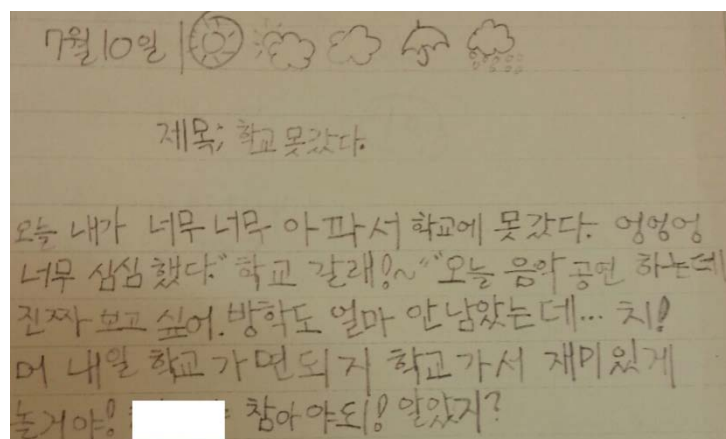 7월 10일
제목; 학교 못갔다.
오늘 내가 너무 너무 아파서 학교에 못갔다. 엉엉엉
너무 심심했다." 학교 갈래!~" "오늘 음악 공연 하는데
진짜 보고 싶어. 방학도 얼마 안남았는데... 치!
머 내일 학교가면되지 학교가서 재미있게
놀거야! 참아야되! 알았지?